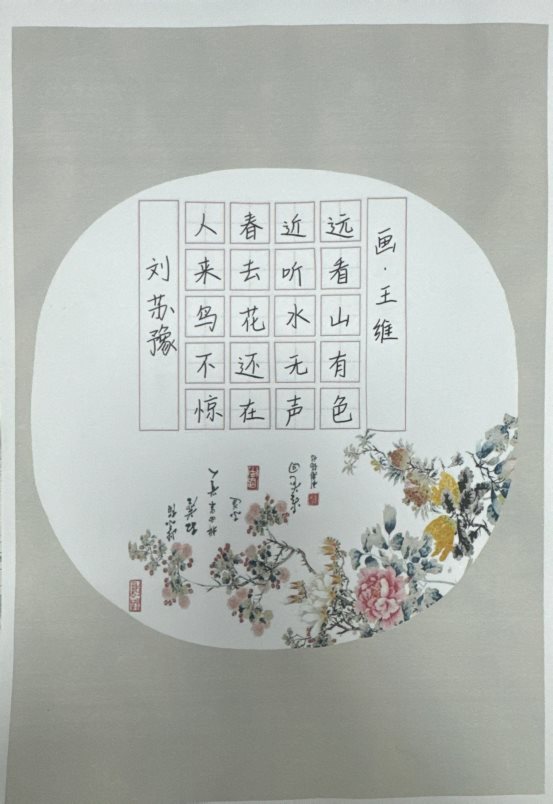 画·王维
远看山有色
近听水无声
春去花还在
人来鸟不惊
刘苏豫